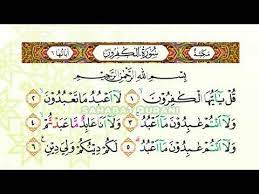 مَكِّيَّة سُوْرَةُ الْكٰفِرُوْنَ اٰيَاتُهَا ٦
بِسْمِ اللّٰهِ الرَّحْمٰنِ الرَّحِيْمِ
قُلْ يٰٓاَيُّهَا الْكٰفِرُوْنَ ١ لَآ اَعْبُدُ مَا تَعْبُدُوْنَ ٢
SAHABAT QURANI
وَلَآ اَنْتُمْ عٰبِدُوْنَ مَآ اَعْبُدُ ٣ وَلَآ اَنَا۠ عَابِدٌ مَّا عَبَدْتُّمْ ٤
وَلَآ اَنْتُمْ عٰبِدُوْنَ مَآ اَعْبُدُ ٥ لَكُمْ دِيْنُكُمْ وَلِيَ دِيْنِ ٦